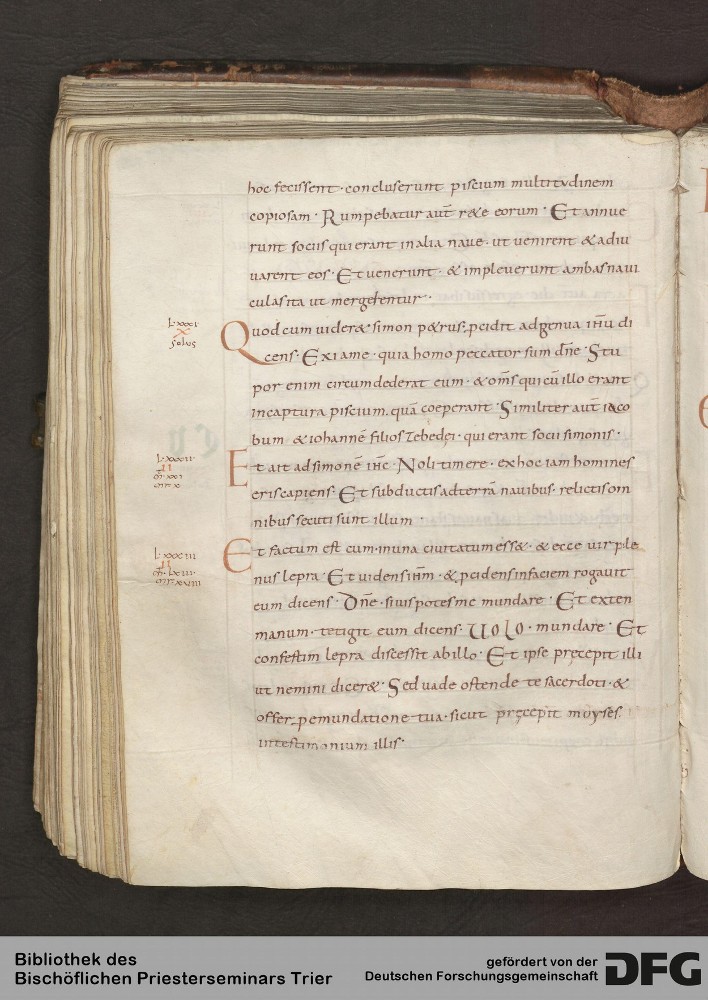 hoc fecissent · concluserunt piscium multitudinem
copiosam · Rumpebatur aut̄ r&e eorum · Et annue
runt sociis qui erant in alia naue · ut uenirent & adiu
uarent eos · Et uenerunt · & impleuerunt ambas naui
culas ita ut mergerentur ·
L· xxxi
x
solus
Quod cum uider& simon p&rus · pcidit ad genua ih̄u di
cens · Exi a me · quia homo peccator sum dn̄e · Stu
por enim circumdederat eum · & om̄s qui cū illo erant
in captura piscium · quā coeperant · Similiter aut̄ iaco
bum & iohannē filios zebedęi · qui erant socii simonis ·
L· xxxii
II
Et ait ad simonē ih̄c · Noli timere · ex hoc iam homines
eris capiens · Et subductis ad terrā nauibus · relictis om
nibus secuti sunt illum ·
L· xxxiii
II
Et factum est cum · in una ciuitatum ess& · & ecce uir ple
nus lepra · Et uidens ih̄m · & pcidens in faciem rogauit
eum dicens · Dn̄e · si uis potes me mundare · Et exten
manum · tetigit eum dicens · UOLO · mundare · Et
confestim lepra discessit ab illo · Et ipse pręcepit illi
ut nemini dicer& · Sed uade ostende te sacerdoti · &
offer p emundatione tua · sicut pręcepit moyses
in testimonium illis ·
Bibliothek des
Bischöflichen Priesterseminars Trier
gefördert von der
Deutschen Forschungsgemeinschaft
DFG